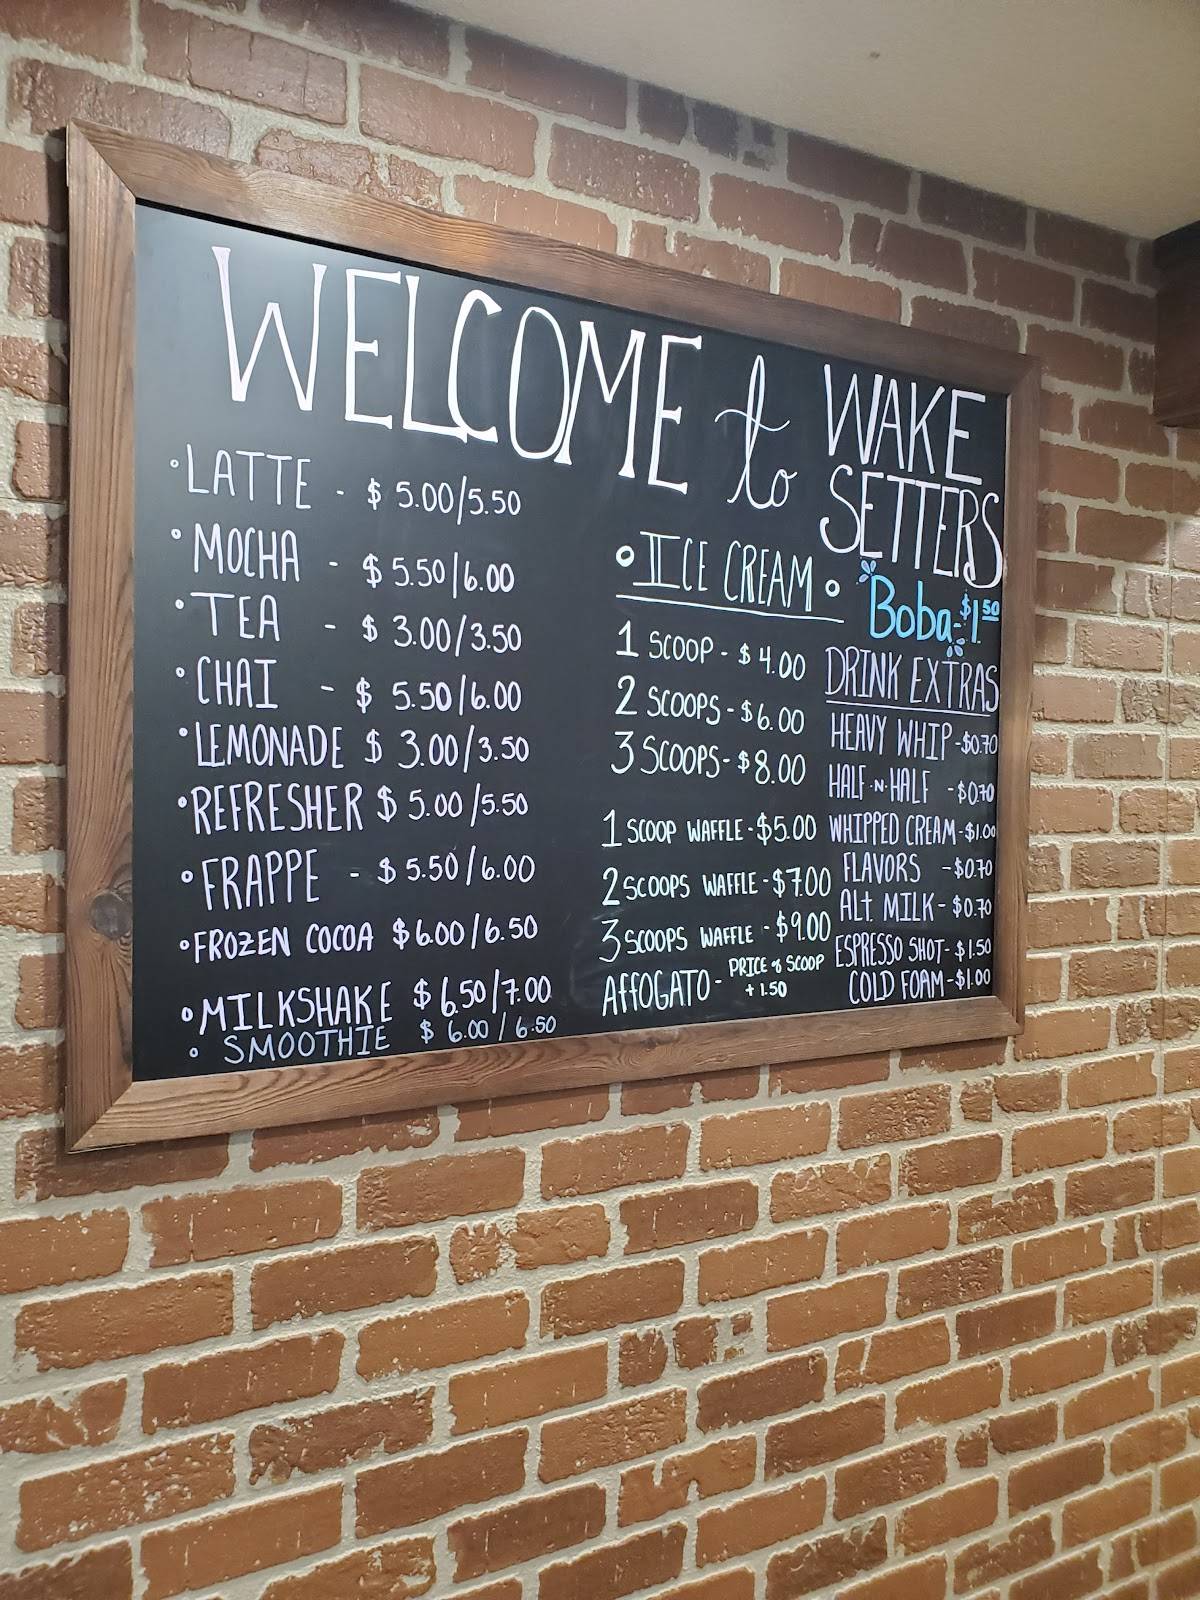 WELCOME to WAKE
SETTERS
°LATTE - $ 5.00/5.50
°MOCHA - $ 5.50/6.00
°TEA - $ 3.00/3.50
°CHAI - $ 5.50/6.00
°LEMONADE $ 3.00/3.50
°REFRESHER $ 5.00/5.50
°FRAPPE - $ 5.50/6.00
°FROZEN COCOA $6.00/6.50
°MILKSHAKE $ 6.50/7.00
° SMOOTHIE $ 6.00/6.50
°ICE CREAM°
1 SCOOP - $ 4.00
2 SCOOPS - $6.00
3 SCOOPS - $8.00
1 SCOOP WAFFLE - $5.00
2 SCOOPS WAFFLE - $7.00
3 SCOOPS WAFFLE - $9.00
AFFOGATO - PRICE of SCOOP
+ 1.50
Boba - $1.50
DRINK EXTRAS
HEAVY WHIP - $0.70
HALF·N·HALF - $0.70
WHIPPED CREAM - $1.00
FLAVORS - $0.70
ALt. MILK - $0.70
ESPRESSO SHOT - $1.50
COLD FOAM - $1.00